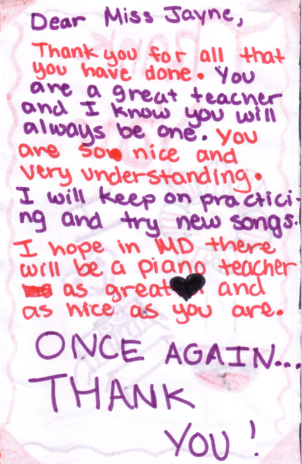 Dear Miss Jayne,
Thank you for all that
you have done. You
are a great teacher
and I know you will
always be one. You
are soo nice and
very understanding.
I will keep on practici-
ng and try new songs.
I hope in MD there
will be a piano teacher
as great and
as nice as you are.
ONCE AGAIN...
THANK
YOU!